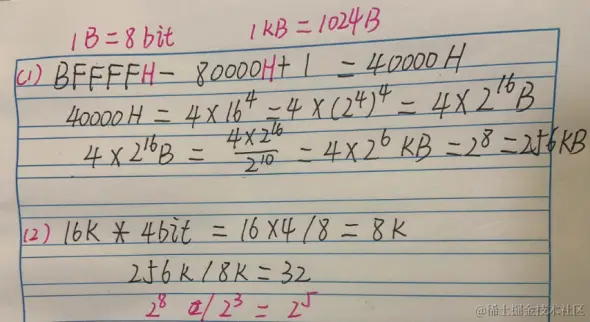 1B=8bit 1kB=1024B
(1) BFFFFH- 80000H+1 = 40000H
40000H = 4×16⁴ =4×(2⁴)⁴ = 4×2¹⁶B
4×2¹⁶B = 4×2¹⁶/2¹⁰ = 4×2⁶ KB =2⁸=256KB
(2) 16K * 4bit = 16×4/8 = 8K
256K/8K=32
2⁸ / 2³ = 2⁵
@稀土掘金技术社区